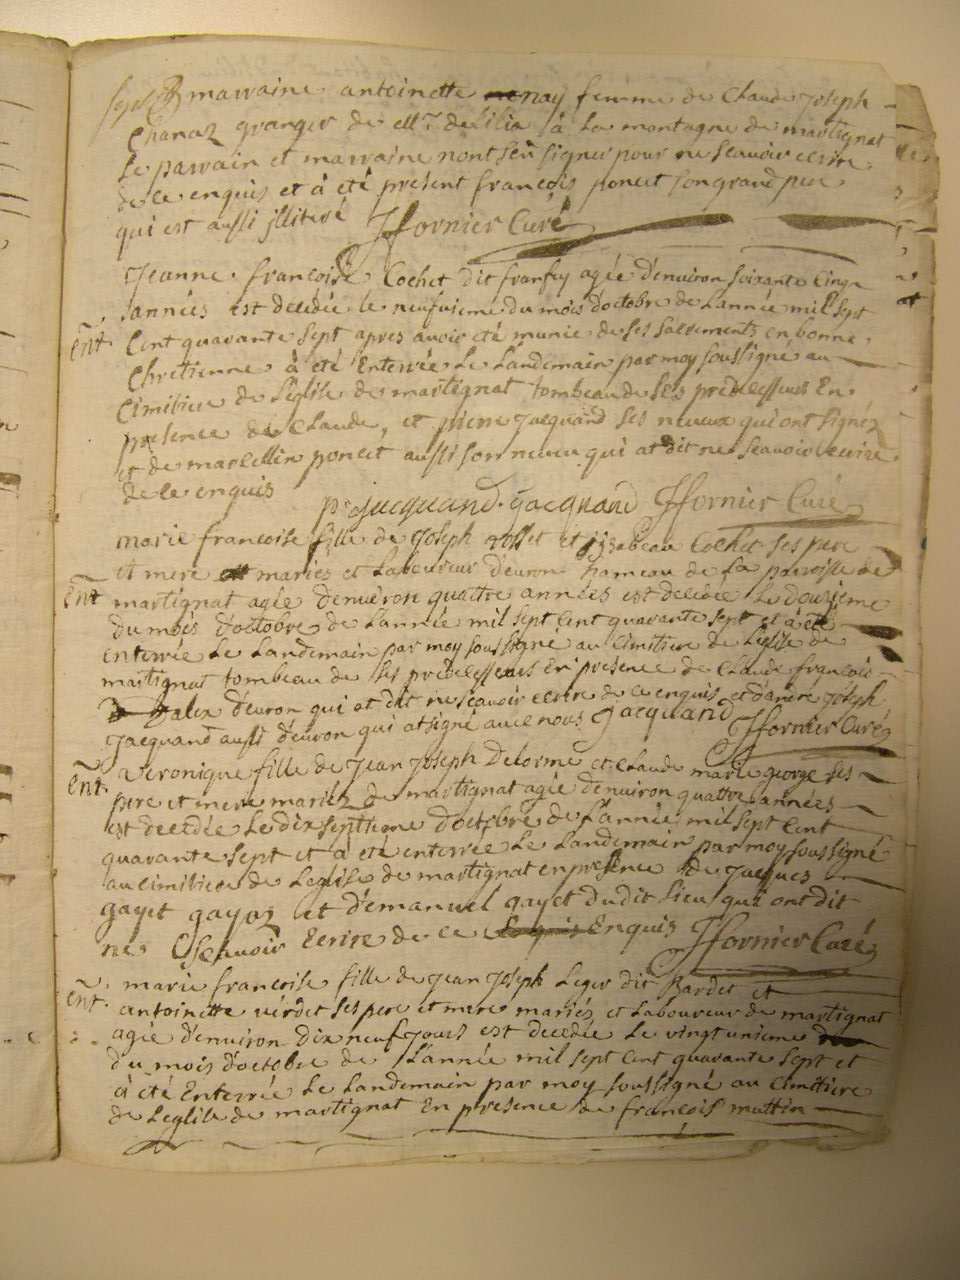 marraine antoinette nay femme de Claude Joseph
Chanaz granger de à la montagne de martignat
le parrain et marraine nont seu signer pour ne scavoir ecrire
de ce enquis et à été present francois poncet son grand pere
qui est aussi illiteré JFfornier Curé
Jeanne francoise Cochet dit franfey agée d'environ soixante cinq
années est decedée le neufvieme du mois d'octobre de L'année mil sept
Ent. Cent quarante sept apres avoir été munie de ses sacrements en bonne
Chretienne à été Enterrée Le Landemain par moy soussigné au
Cimitiere de L'eglise de martignat tombeau de ses predecesseurs En
presence de Claude, et pierre Jacquand ses neveux qui ont signéz
et de marcellin poncet aussi son neveu qui at dit ne scavoir ecrire
de ce enquis
pre jacquand. jacquand JFfornier Curé
marie francoise fille de Joseph rosset et isabeau Cochet ses pere
et mere mariés et Laboureur d'evron hameau de La paroisse de
Ent martignat agée d'environ quattre années est decedée Le douzieme
du mois d'octobre de L'année mil sept Cent quarante sept et à été
enterrée Le Landemain par moy soussigné au Cimitiere de L'eglise de
martignat tombeau de ses predecesseurs en presence de Claude francois
alex d'evron qui at dit ne scavoir ecrire de ce enquis et d'andre Joseph
Jacquand aussi d'evron qui at signé avec nous Jacquand JFfornier Curé
Ent. veronique fille de Jean Joseph Delorme et Claude marie george ses
pere et mere mariez de martignat agée d'environ quattre années
est decedée Le dix septieme d'octobre de L'année mil sept Cent
quarante sept et à été enterrée Le Landemain par moy soussigné
au Cimitiere de Leglise de martignat en presence de Jacques
gayet et d'emanuel gayet dudit lieu qui ont dit
ne scavoir Ecrire de ce Enquis JFfornier Curé
Ent. marie francoise fille de Jean Joseph Leger dit Bardet et
antoinette verdet ses pere et mere mariés et Laboureur de martignat
agée d'environ dix neuf Jours est decedée Le vingt unieme
du mois d'octobre de L'année mil sept Cent quarante sept et
à été Enterrée Le Landemain par moy soussigné au Cimitiere
de L'eglise de martignat En presence de francois muttin